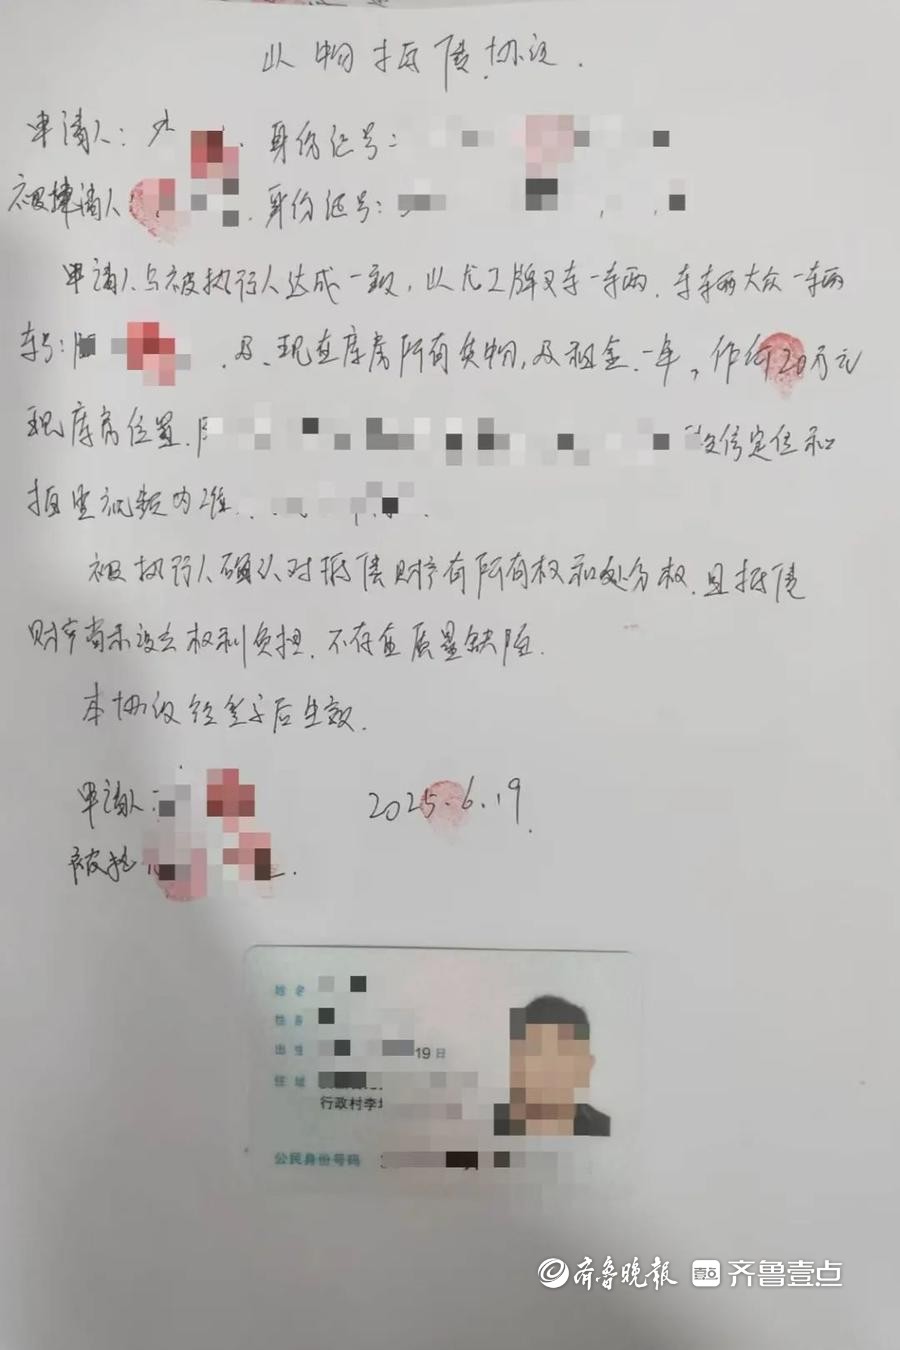 以物抵债协议.
申请人: 身份证号:
被申请人 . 身份证号:
申请人与被执行人达成一致, 以尤工牌叉车一车辆. 车辆大众一车辆
车号: . 及、现在库房所有货物, 及租金一年, 作价20万元
现库房位置. 微信定位和
拍里视频为准.
被执行人确认对抵债财产有所有权和处分权. 且抵债
财产尚未设立权利负担. 不存在质量缺陷.
本协议经签字后生效.
申请人: 2025.6.19.
被执
姓名
性别
出生 19日
住址
行政村李
公民身份号码
齐鲁晚报 壹点 齐鲁壹点